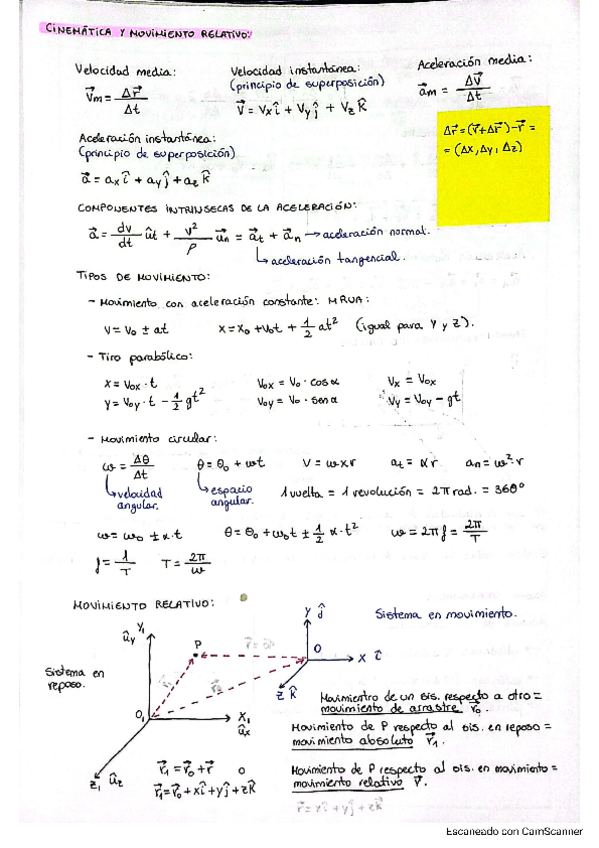 CINEMÁTICA Y MOVIMIENTO RELATIVO:
Velocidad media:
Vm = Δr / Δt
Velocidad instantánea:
(principio de superposición)
V = Vx î + Vy ĵ + Vz K̂
Aceleración media:
am = ΔV / Δt
Δr = (r + Δr) - r =
= (Δx, Δy, Δz)
Aceleración instantánea:
(principio de superposición)
a = ax î + ay ĵ + az K̂
COMPONENTES INTRINSECAS DE LA ACELERACIÓN:
a = dv/dt ût + v²/ρ un = at + an → aceleración normal.
↳ aceleración tangencial.
TIPOS DE MOVIMIENTO:
- Movimiento con aceleración constante: MRUA:
V = V0 ± at x = x0 + V0t + 1/2 at² (igual para y y z).
- Tiro parabólico:
x = V0x · t V0x = V0 · cos α Vx = V0x
y = V0y · t - 1/2 gt² V0y = V0 · sen α Vy = V0y - gt
- Movimiento circular:
ω = Δθ / Δt θ = θ0 + ωt V = ω x r at = α r an = ω² · r
↳ velocidad angular.
↳ espacio angular.
1 vuelta = 1 revolución = 2π rad. = 360º
ω = ω0 ± α · t θ = θ0 + ω0t ± 1/2 α · t² ω = 2π f = 2π/T
f = 1/T T = 2π/ω
MOVIMIENTO RELATIVO:
Sistema en movimiento.
Y1
ûy
P
Y ĵ
O
X î
Z K̂
Sistema en
reposo.
r0
O1
X1
ûx
Z1 ûz
Movimientro de un sis. respecto a otro =
movimiento de arrastre r0.
Movimiento de P respecto al sis. en reposo =
movimiento absoluto r1.
r1 = r0 + r o
r1 = r0 + xî + yĵ + zK̂
Movimiento de P respecto al sis. en movimiento =
movimiento relativo r.
r = xî + yĵ + zK̂
Escaneado con CamScanner